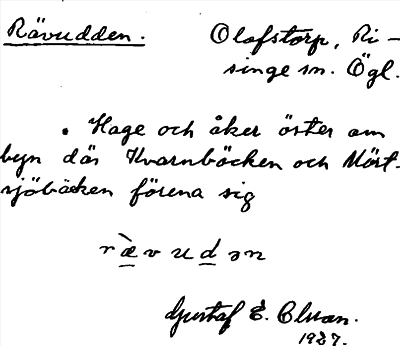 Rävudden. Olofstorp, Ri-
singe sn. Ögl.
. Hage och åker öster om
byn där Kvarnbäcken och Mört-
sjöbäcken förena sig
ræ̀vudən
Gustaf E. Olsson.
1927.